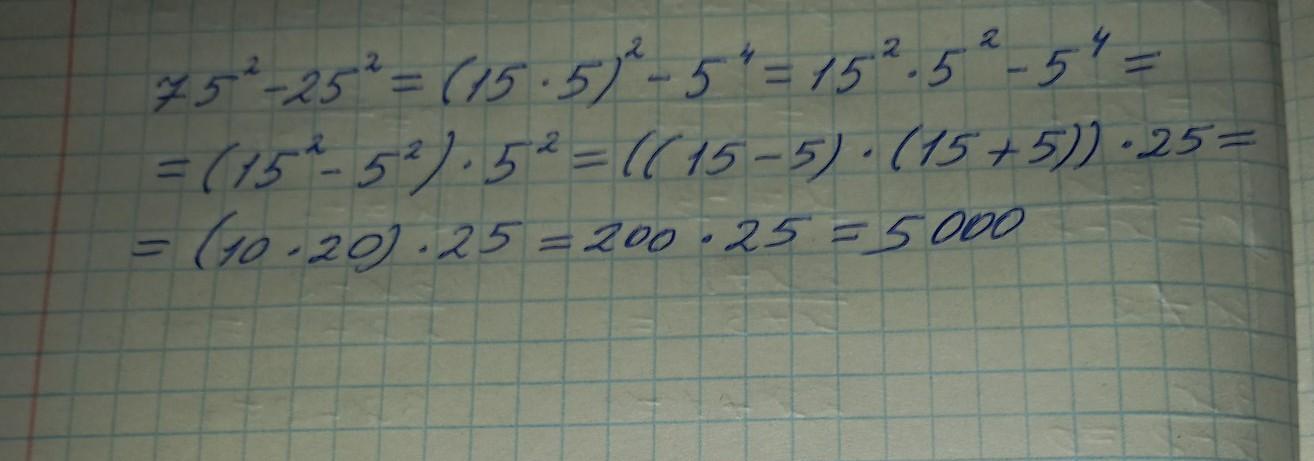 75² - 25² = (15 · 5)² - 5⁴ = 15² · 5² - 5⁴ =
= (15² - 5²) · 5² = ((15 - 5) · (15 + 5)) · 25 =
= (10 · 20) · 25 = 200 · 25 = 5000